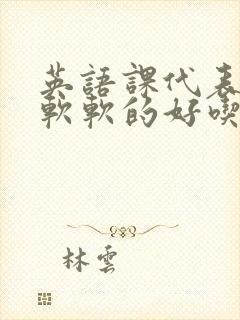 英語課代表
軟軟的好喫
林雲